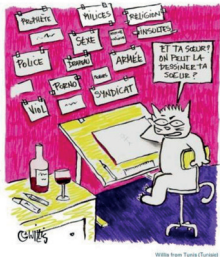 PROPHÈTE
MILICES
RELIGION
SEXE
INSULTES
POLICE
ARMÉE
PORNO
SYNDICAT
VIOL
ET TA SŒUR?
ON PEUT LA
DESSINER TA
SŒUR?
Willis from Tunis (Tunisie)